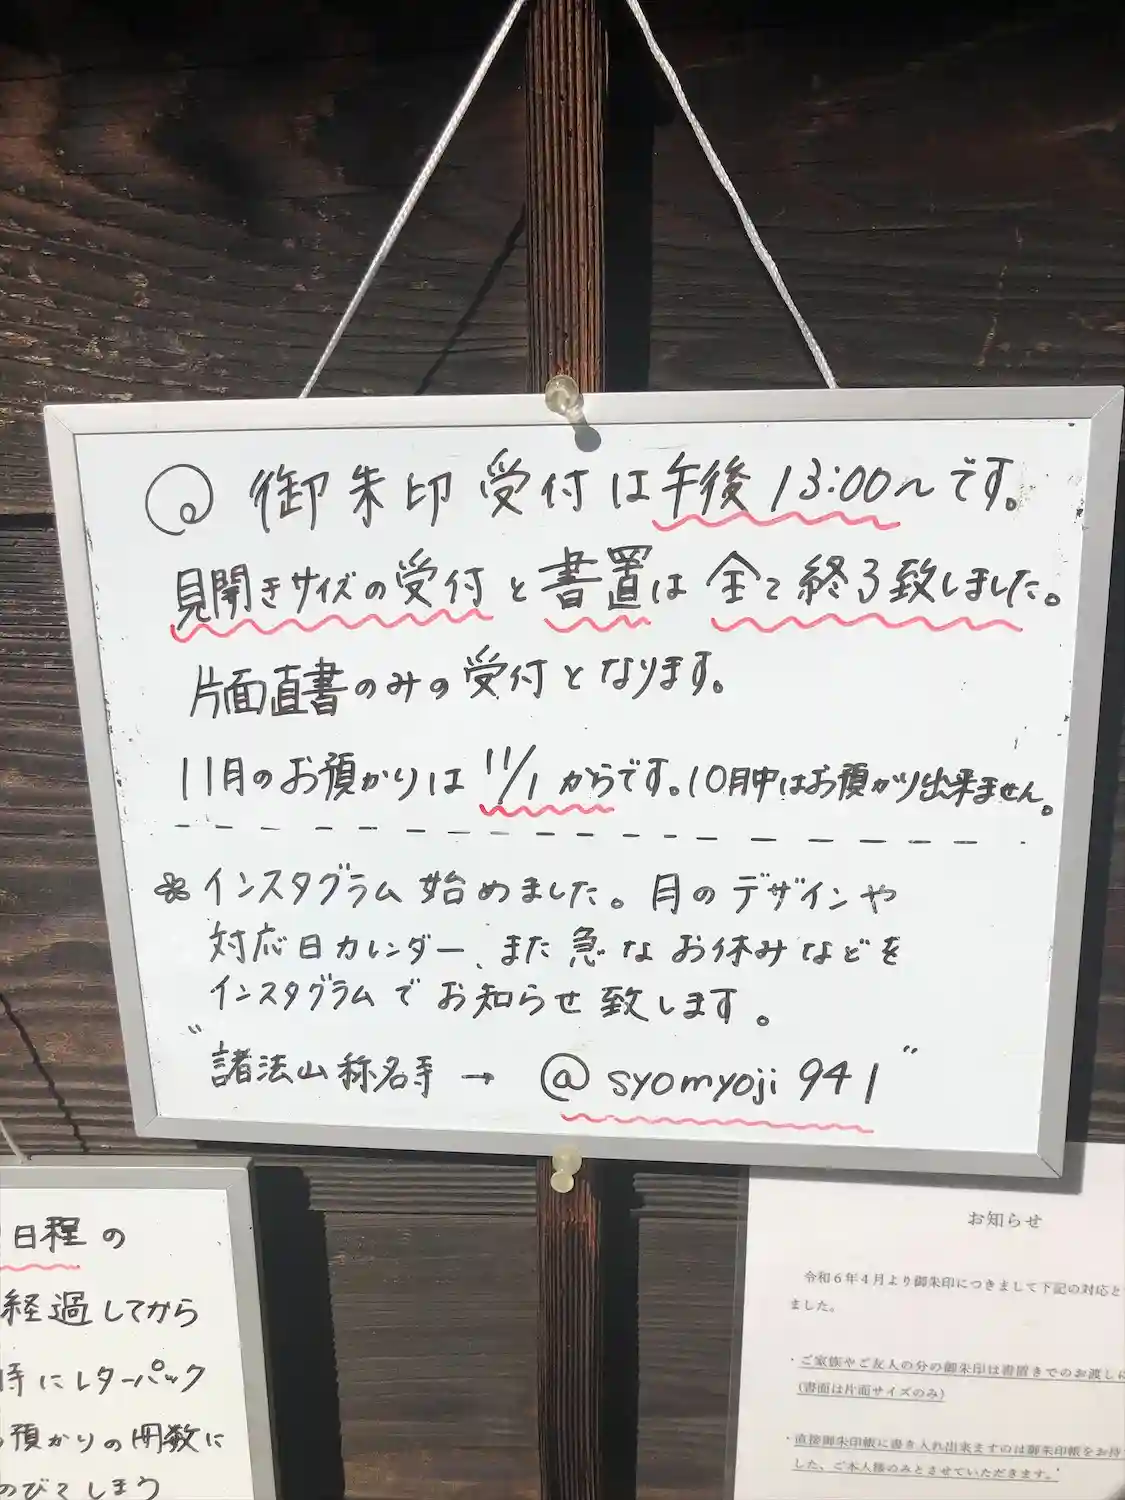 @ 御朱印受付は午後13:00〜です。
見開きサイズの受付と書置は全て終了致しました。
片面直書のみの受付となります。
11月のお預かりは11/1からです。10月中はお預かり出来ません。
インスタグラム始めました。月のデザインや
対応日カレンダー、また急なお休みなどを
インスタグラムでお知らせ致します。
"諸法山称名寺 → @syomyoji941"
日程の
経過してから
時にレターパック
預かりの冊数に
のびてしまう
お知らせ
令和6年4月より御朱印につきまして下記の対応と
ました。
・ご家族やご友人の分の御朱印は書置きでのお渡しに
(書面は片面サイズのみ)
・直接御朱印帳に書き入れ出来ますのは御朱印帳をお持
した、ご本人様のみとさせていただきます。